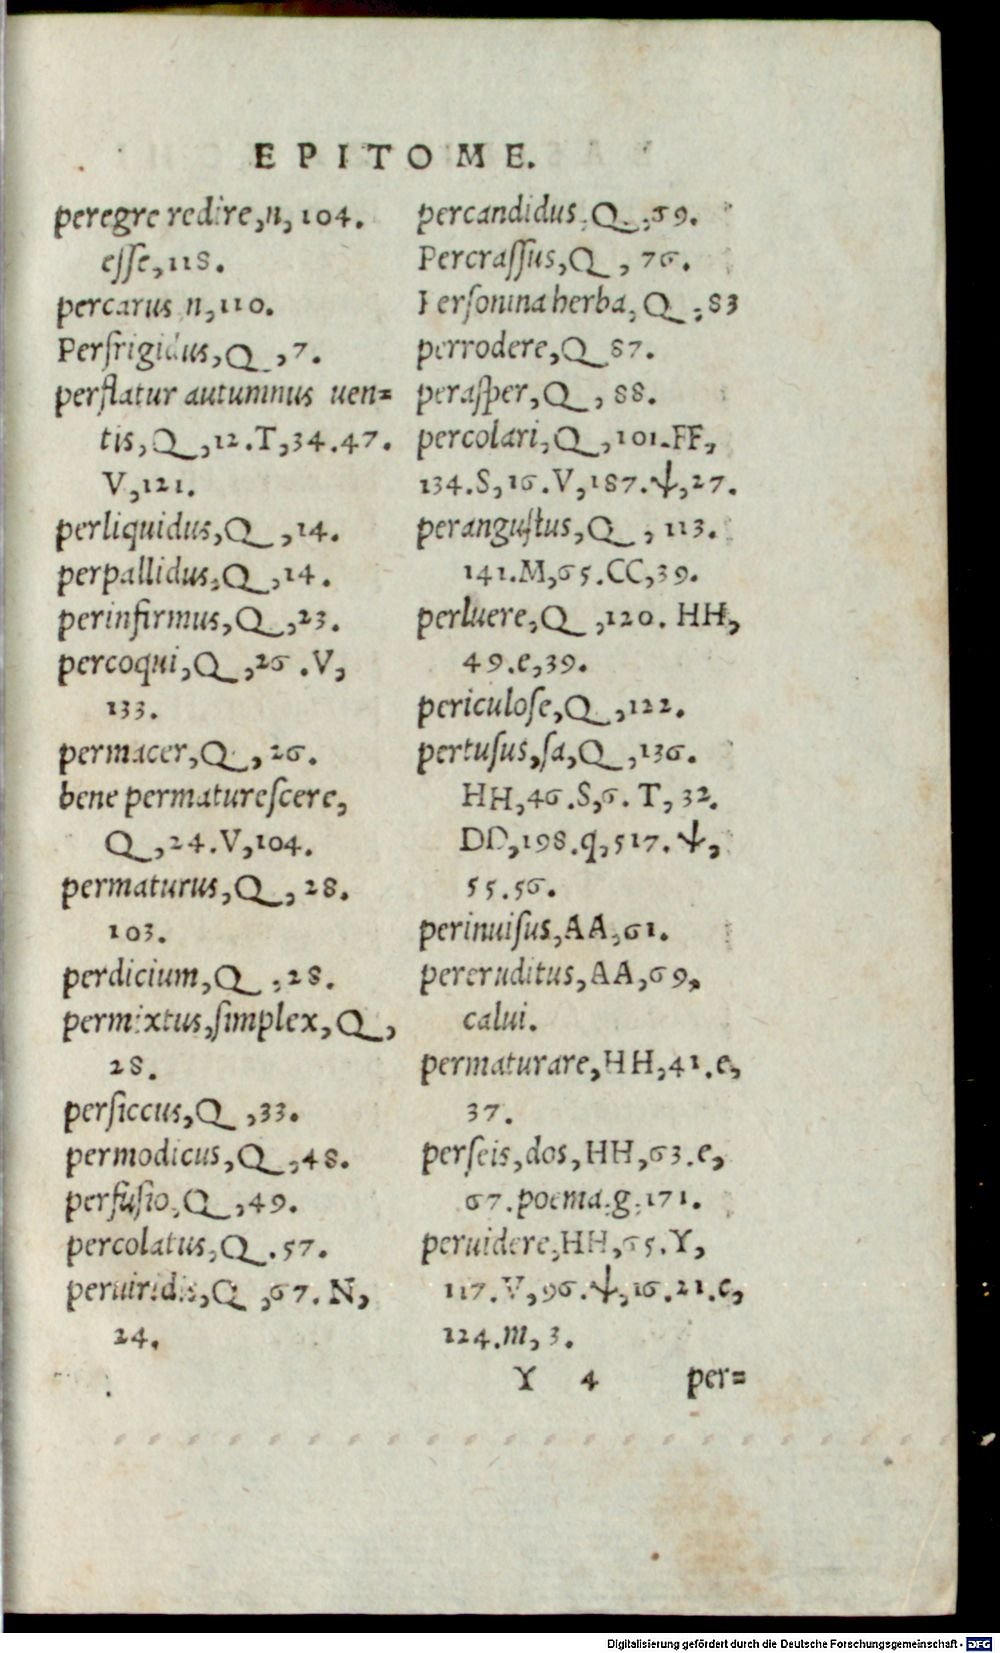 EPITOME.
peregre redire,n,104.
esse,118.
percarus n,110.
Perfrigidus,Q,7.
perflatur autumnus uen=
tis,Q,12.T,34.47.
V,121.
perliquidus,Q,14.
perpallidus,Q,14.
perinfirmus,Q,23.
percoqui,Q,26.V,
133.
permacer,Q,26.
bene permaturescere,
Q,24.V,104.
permaturus,Q,28.
103.
perdicium,Q,28.
permixtus,simplex,Q,
28.
persiccus,Q,33.
permodicus,Q,48.
perfusio,Q,49.
percolatus,Q.57.
peruiridis,Q,67.N,
24.
percandidus,Q,69.
Percrassus,Q,76.
Personina herba,Q,83
perrodere,Q 87.
perasper,Q,88.
percolari,Q,101.FF,
134.S,16.V,187.ψ,27.
perangustus,Q,113.
141.M,65.CC,39.
perluere,Q,120.HH,
49.e,39.
periculose,Q,122.
pertusus,sa,Q,136.
HH,46.S,6.T,32.
DD,198.q,517.ψ,
55.56.
perinuisus,AA,61.
pereruditus,AA,69,
calui.
permaturare,HH,41.e,
37.
perseis,dos,HH,63.e,
67.poema.g,171.
peruidere,HH,65.Y,
117.V,96.ψ,16.21.c,
124.m,3.
Y 4 per=
Digitalisierung gefördert durch die Deutsche Forschungsgemeinschaft - DFG